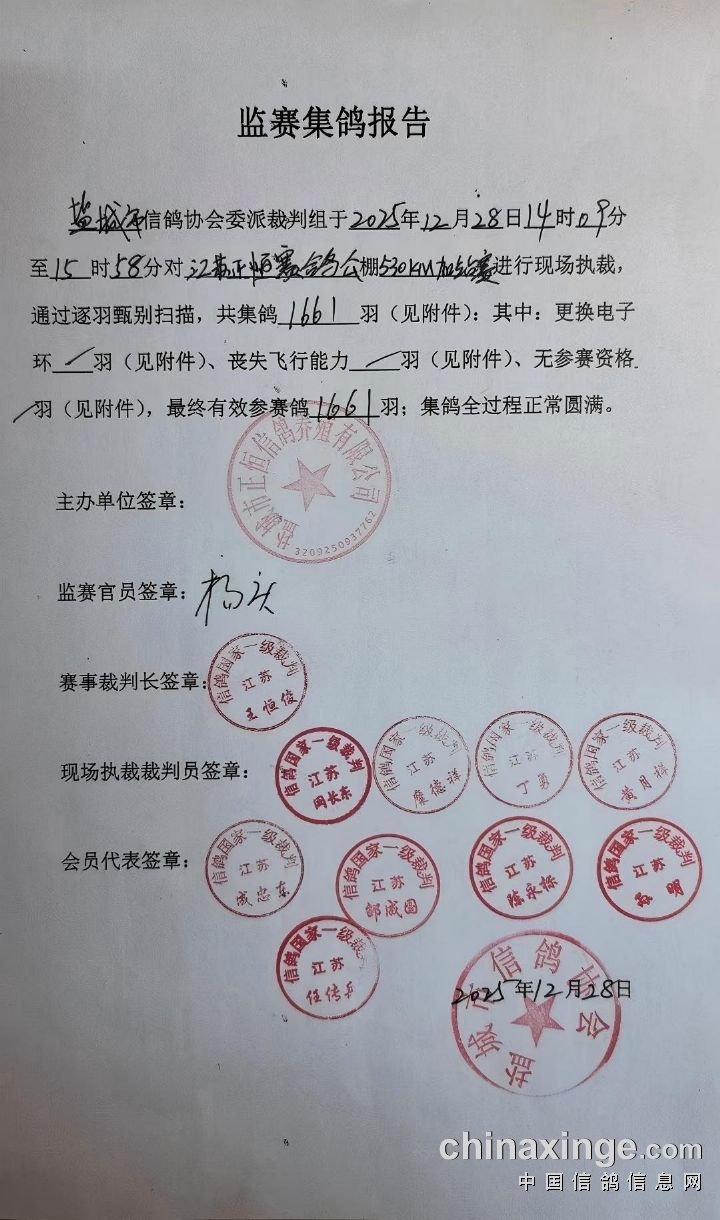 监赛集鸽报告
盐城市信鸽协会委派裁判组于2025年12月28日14时09分
至15时58分对江苏正恒赛鸽公棚530KM加站赛进行现场执裁，
通过逐羽甄别扫描，共集鸽1661羽（见附件）：其中：更换电子
环/羽（见附件）、丧失飞行能力/羽（见附件）、无参赛资格
/羽（见附件），最终有效参赛鸽1661羽；集鸽全过程正常圆满。
盐城市正恒信鸽养殖有限公司
3209250937762
主办单位签章：
监赛官员签章：杨
赛事裁判长签章：
信鸽国家一级裁判
江苏
王恒俊
现场执裁裁判员签章：
信鸽国家一级裁判
江苏
闵长东
信鸽国家一级裁判
江苏
糜德祥
信鸽国家一级裁判
江苏
丁勇
信鸽国家一级裁判
江苏
黄月祥
会员代表签章：
信鸽国家一级裁判
江苏
成忠东
信鸽国家一级裁判
江苏
邰成圆
信鸽国家一级裁判
江苏
陈永标
信鸽国家一级裁判
江苏
明
信鸽国家一级裁判
江苏
任传兵
盐城市信鸽协会
2025年12月28日
chinaxinge.com
中国信鸽信息网